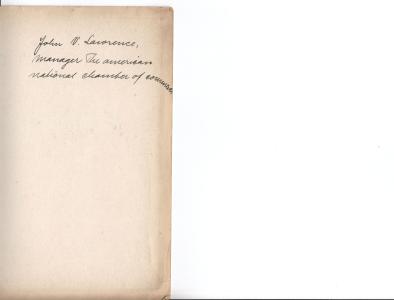 John V. Lawrence,
Manager The american
national chamber of commerce